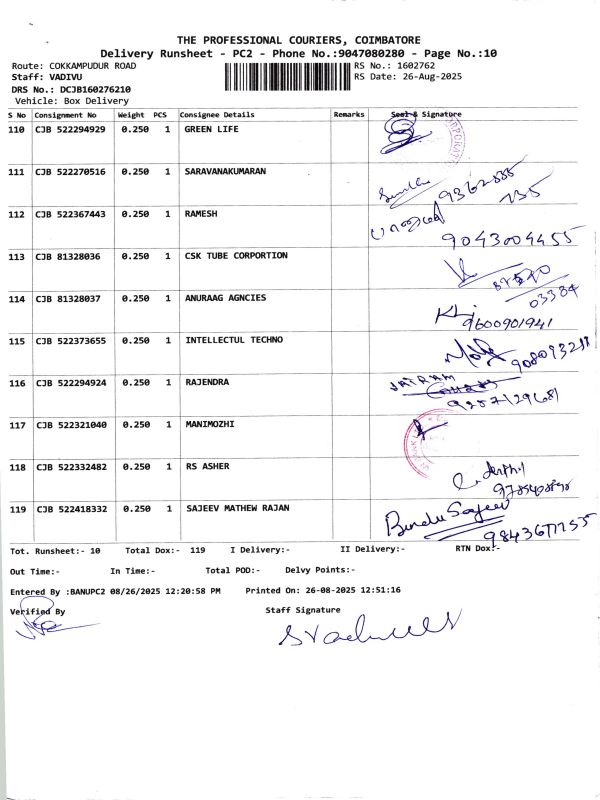 THE PROFESSIONAL COURIERS, COIMBATORE
Delivery Runsheet - PC2 - Phone No.:9047080280 - Page No.:10
Route: COKKAMPUDUR ROAD
RS No.: 1602762
Staff: VADIVU
RS Date: 26-Aug-2025
DRS No.: DCJB160276210
Vehicle: Box Delivery
S No Consignment No Weight PCS Consignee Details Remarks Seal & Signature
110 CJB 522294929 0.250 1 GREEN LIFE
111 CJB 522270516 0.250 1 SARAVANAKUMARAN
112 CJB 522367443 0.250 1 RAMESH
9043004455
113 CJB 81328036 0.250 1 CSK TUBE CORPORTION
114 CJB 81328037 0.250 1 ANURAAG AGNCIES
9600901941
115 CJB 522373655 0.250 1 INTELLECTUL TECHNO
116 CJB 522294924 0.250 1 RAJENDRA
JAIRAM
117 CJB 522321040 0.250 1 MANIMOZHI
118 CJB 522332482 0.250 1 RS ASHER
119 CJB 522418332 0.250 1 SAJEEV MATHEW RAJAN
Bindu Sajeev
Tot. Runsheet:- 10 Total Dox:- 119 I Delivery:- II Delivery:- RTN Dox:-
Out Time:- In Time:- Total POD:- Delvy Points:-
Entered By :BANUPC2 08/26/2025 12:20:58 PM Printed On: 26-08-2025 12:51:16
Verified By Staff Signature